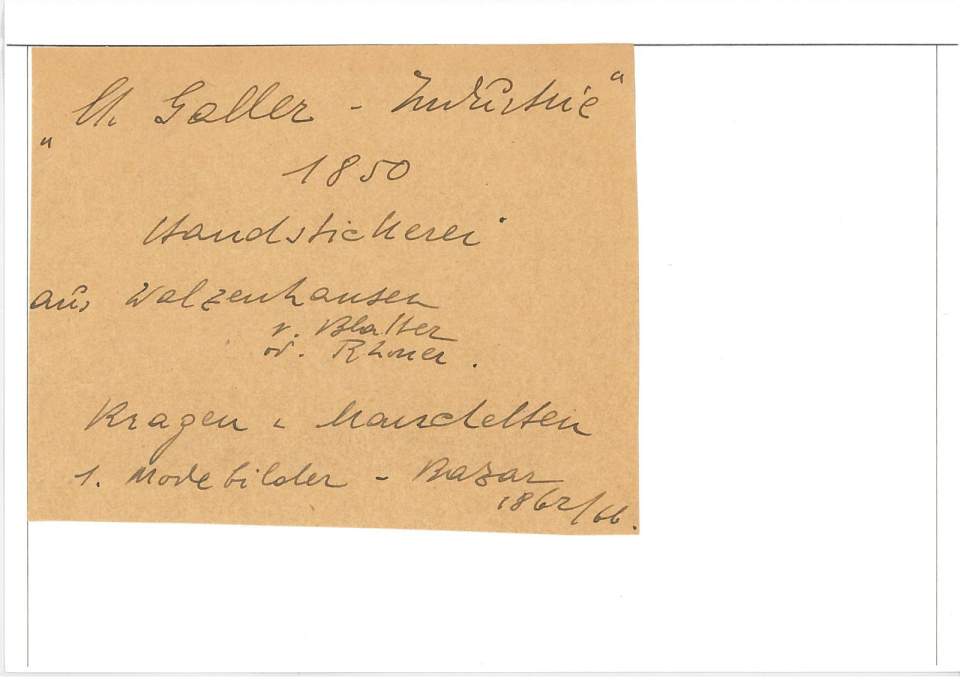 „St. Galler - Industrie“
1850
Handstickerei
aus Walzenhausen
v. Blatter
od. Rhoner.
Kragen u Manschetten
1. Modebilder - Bazar
1862/66.